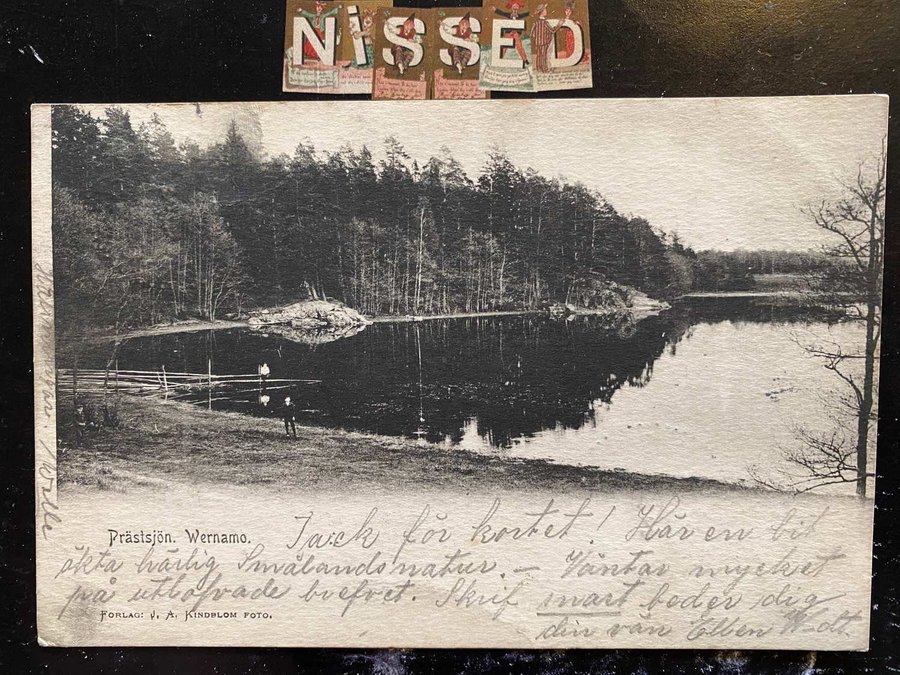 NiSSED
Prästsjön. Wernamo.
Tack för kortet! Här en bit
äkta härlig Smålandsnatur. – Väntar mycket
på utlofvade brefvet. Skrif snart beder dig
FÖRLAG: J. A. KINDBLOM FOTO.
din vän Ellen W–dt.